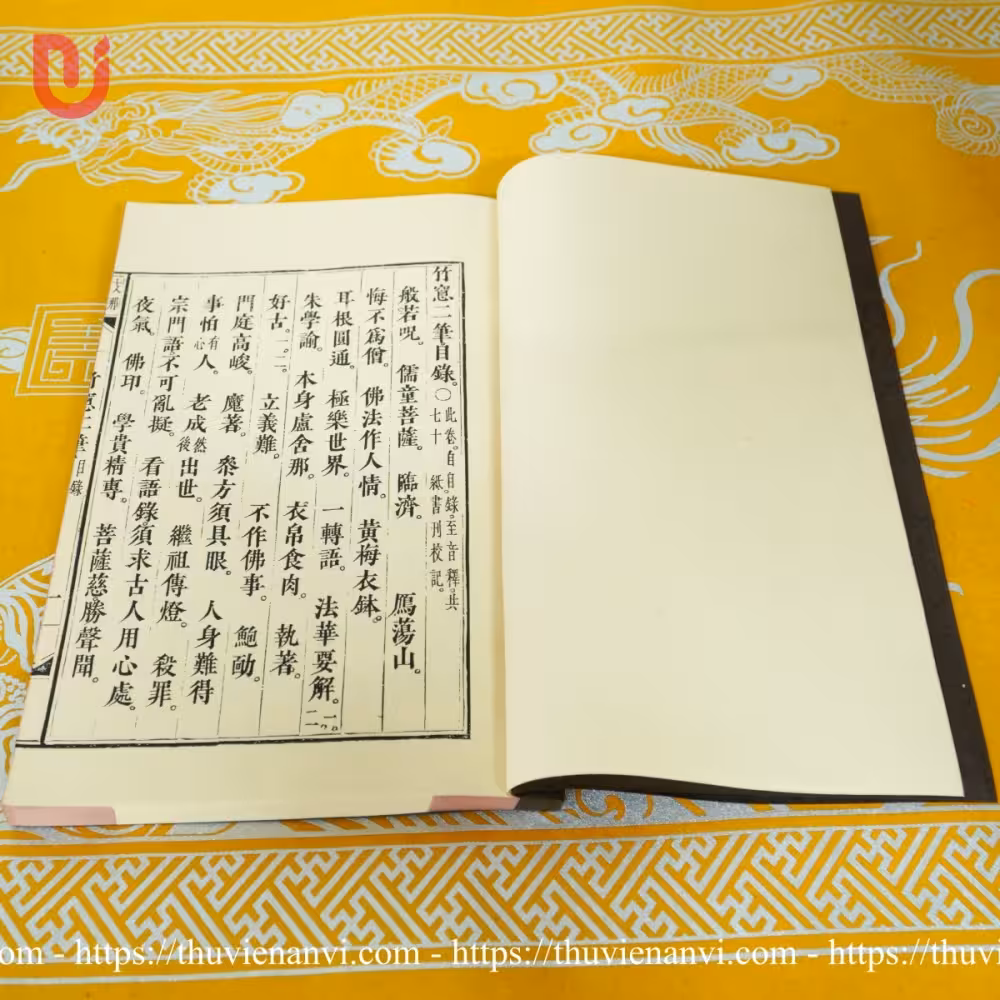 竹窻二筆目錄。〇此卷。自目錄。至音釋。共七十紙書刊校記。
般若呪。 儒童菩薩。 臨濟。 鴈蕩山。
悔不爲僧。 佛法作人情。 黃梅衣鉢。
耳根圓通。 極樂世界。 一轉語。 法華要解。一。二
朱學諭。 木身盧舍那。 衣帛食肉。 執著。
好古。一。二。 立義難。 不作佛事。 鮑勔。
門庭高峻。 魔著。 叅方須具眼。 人身難得
事怕有心人。 老成然後出世。 繼祖傳燈。 殺罪。
宗門語不可亂擬。 看語錄須求古人用心處。
夜氣。 佛印。 學貴精專。 菩薩慈勝聲聞。
竹窻二筆目錄 一
om - https://thuvienanvi.com - https://thuvienanvi.com - https://thuvi